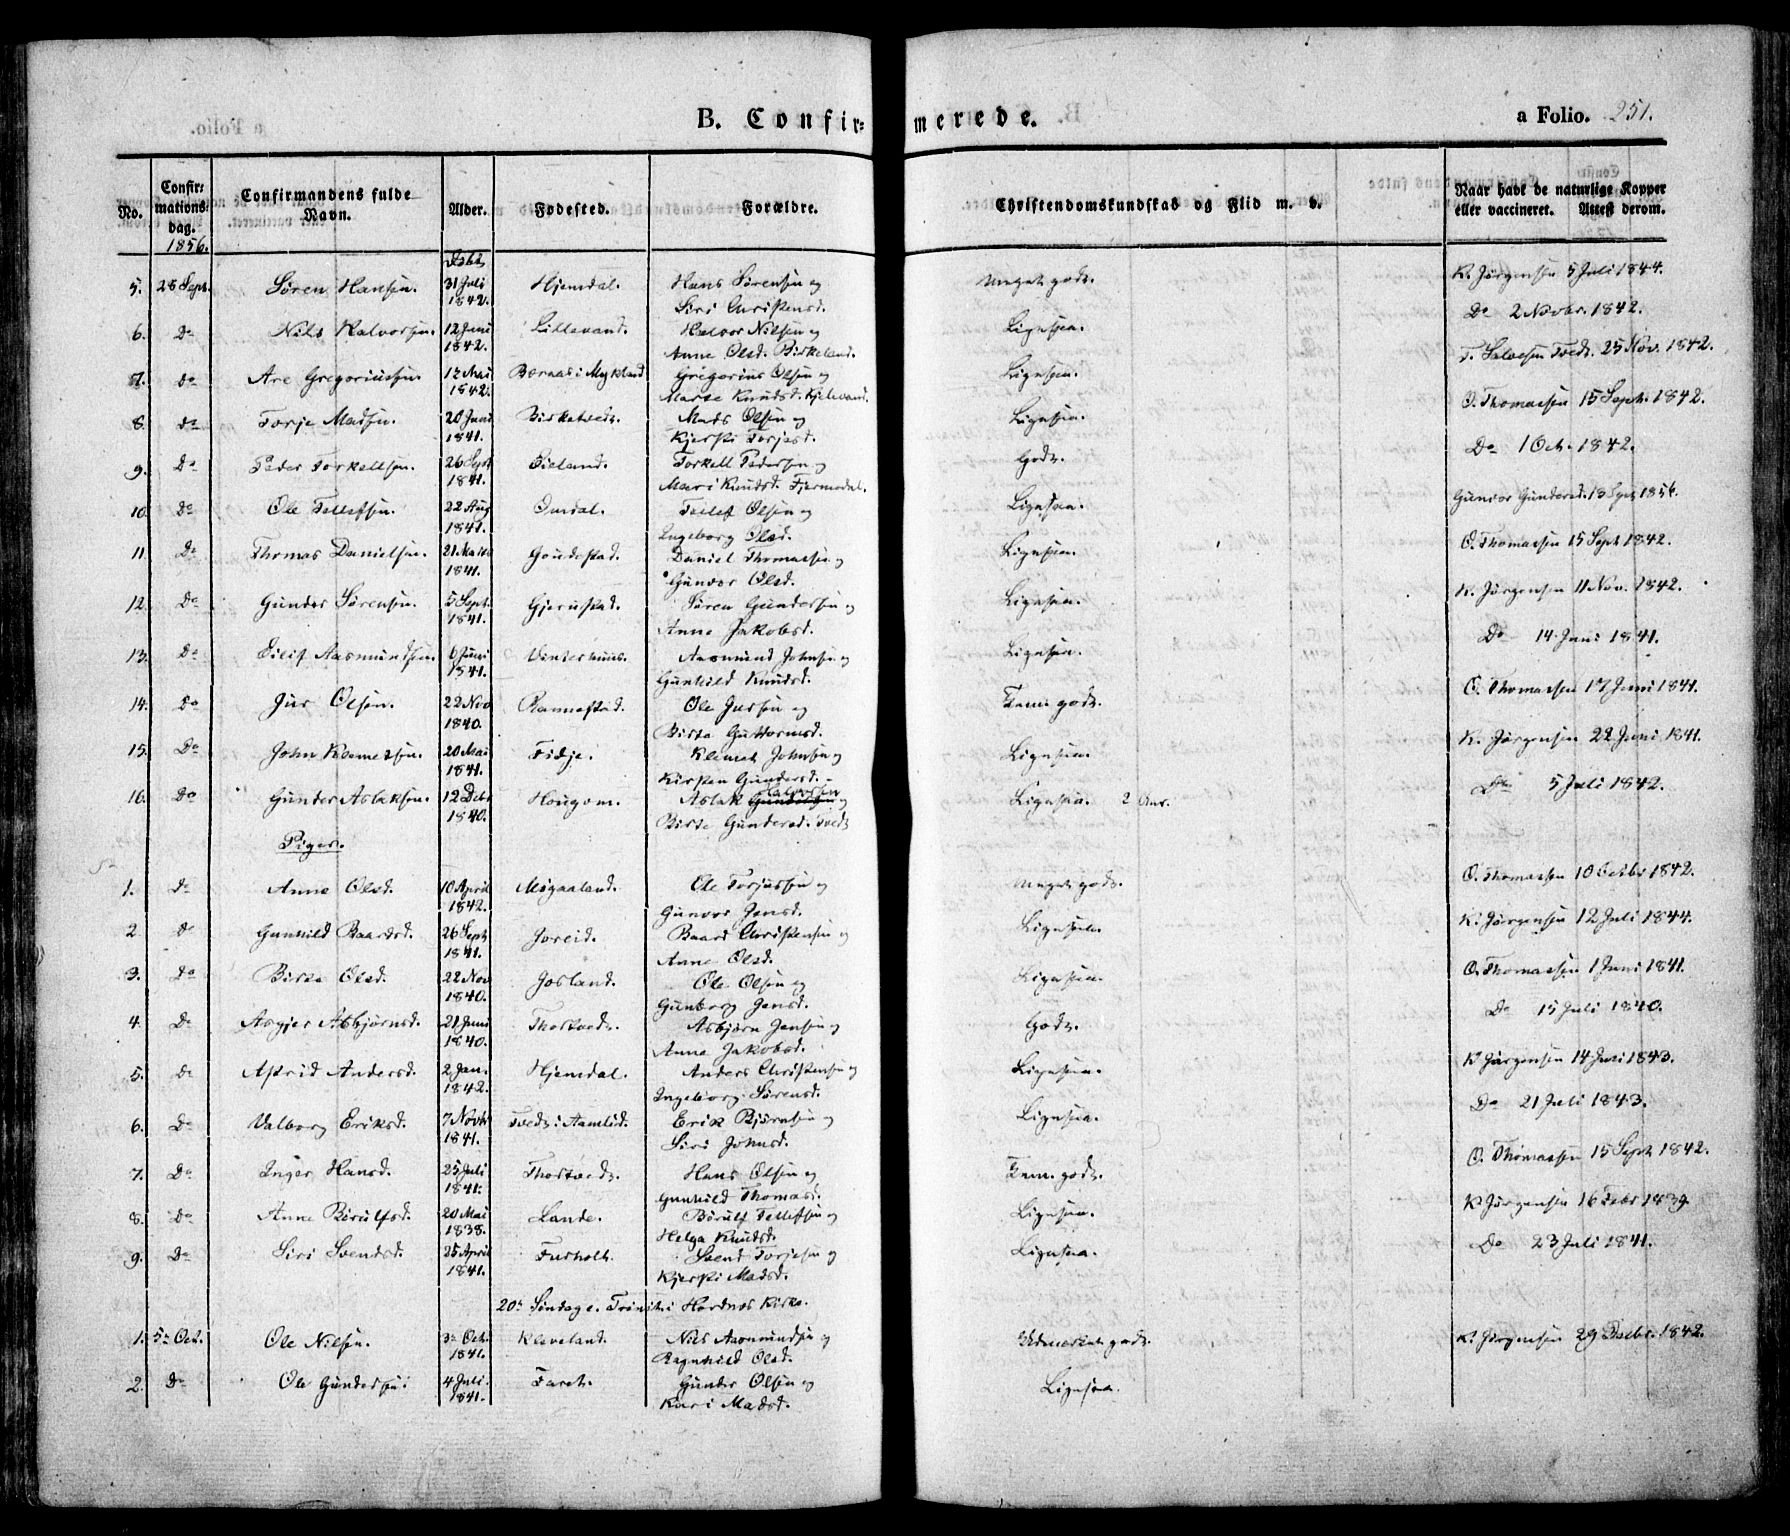 B. Confirmerede.
a Folio. 251.
No. Confirmationsdag. Confirmandens fulde Navn. Alder. Fødested. Forældre. Christendomskundskab og Flid m. v. Naar havt de naturlige Kopper eller vaccineret. Attest derom.
1856.
5. 28 Sept. Søren Hansen. 31 Juli 1842. Hjemdal. Hans Sørensen og Siri Christensd. Meget godt. K. Jørgensen 5 Juli 1844.
6. Do Nils Halvorsen. 12 Juni 1842. Lillevand. Halvor Nilsen og Anne Olsd. Birkeland. Ligesaa. Do 2 Novbr. 1842.
7. Do Are Gregoriussen. 12 Mai 1842. i Mykland Gregorius Olsen og Marte Knudsd. Kjelevand. Ligesaa. T. Salvesen Tvedt 25 Nov. 1842.
8. Do Torje Madsen. 20 Juni 1841. Birketvedt. Mads Olsen og Kjersti Torjesd. Ligesaa. O. Thomassen 15 Sept. 1842.
9. Do Peder Torkellsen. 26 Sept 1841. Sieland. Torkell Pedersen og Mari Knudsd. Fjermedal. Godt. Do 1 Oct. 1842.
10. Do Ole Tellefsen. 22 Aug 1841. Omdal. Tellef Olsen og Ingeborg Olsd. Ligesaa. Gunvor Gundersd. 13 Sept 1856.
11. Do Thomas Danielsen. 21 Marts 1841. Goudestad. Daniel Thomassen og Gunvor Olsd. Ligesaa. O. Thomassen 15 Sept 1842.
12. Do Gunder Sørensen. 5 Sept. 1841. Gjerustad. Søren Gundersen og Anne Jakobsd. Ligesaa. K. Jørgensen 11 Nov. 1842.
13. Do Eilif Aasmundsen. 6 Juni 1841. Vinterhuus. Aasmund Johnsen og Gunhild Knudsd. Ligesaa. Do 14 Juni 1841.
14. Do Jur Olsen. 22 Nov 1840. Rannestad. Ole Jursen og Birte Guttormsd. Tem. godt. O. Thomassen 17 Juni 1841.
15. Do John Klemetsen. 20 Mai 1841. Fidje. Klemet Johnsen og Kirsten Gundersd. Ligesaa. K. Jørgensen 22 Juni 1841.
16. Do Gunder Aslaksen. 12 Debr 1840. Hougom. Aslak Halvorsen og Birte Gundersd. Tvedt Ligesaa. 2 Do 5 Juli 1842.
Piger.
1. Do Anne Olsd. 10 April 1842. Migaaland. Ole Torjussen og Gunvor Jensd. Meget godt. O. Thomassen 10 Octbr 1842.
2 Do Gunhild Baardsd. 26 Sept 1841. Joreid. Baard Christensen og Anne Olsd. Ligesaa. K. Jørgensen 12 Juli 1844.
3. Do Birte Olsd. 22 Nov 1840. Josland. Ole Olsen og Gunborg Jensd. Ligesaa. O. Thomassen 1 Juni 1841.
4. Do Asgjer Asbjørnsd. 21 Juni 1840. Thortvedt. Asbjørn Jensen og Anne Jakobsd. Godt. Do 15 Juli 1840.
5. Do Astrid Andersd. 2 Jan. 1842. Hjemdal. Anders Christensen og Ingeborg Sørensd. Ligesaa. K. Jørgensen 14 Juni 1843.
6. Do Valborg Eriksd. 7 Novbr 1841. Tvedt i Aamlid. Erik Bjørnsen og Siri Johnsd. Ligesaa. Do 21 Juli 1843.
7. Do Inger Hansd. 25 Juli 1841. Thortvedt. Hans Olsen og Gunhild Thomasd. Tem. godt. O. Thomassen 15 Sept 1842.
8. Do Anne Børulfsd. 20 Mai 1838. Lande. Børulf Tellefsen og Helga Knudsd. Ligesaa. K. Jørgensen 16 Febr 1839.
9. Do Siri Svendsd. 25 April 1841. Furholt. Svend Torjesen og Kjersti Madsd. Ligesaa. Do 23 Juli 1841.
20de Søndag e. Trinit. i Hordnes Kirke.
1. 5te Oct. Ole Nilsen. 3de Oct. 1841. Kleveland. Nils Aasmundsen og Ragnhild Olsd. Udmærket godt. K. Jørgensen 29 Decbr. 1842.
2. Do Ole Gundersen. 4 Juli. 1841. Faret. Gunder Olsen og Kari Madsd. Ligesaa.